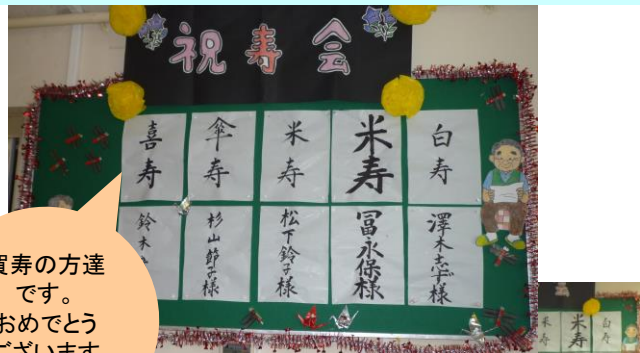 祝寿会
喜寿
傘寿
米寿
米寿
白寿
鈴木
杉山節子様
松下鈴子様
冨永保様
澤木志げ様
賀寿の方達
です。
おめでとう
ございます
米寿
米寿
白寿